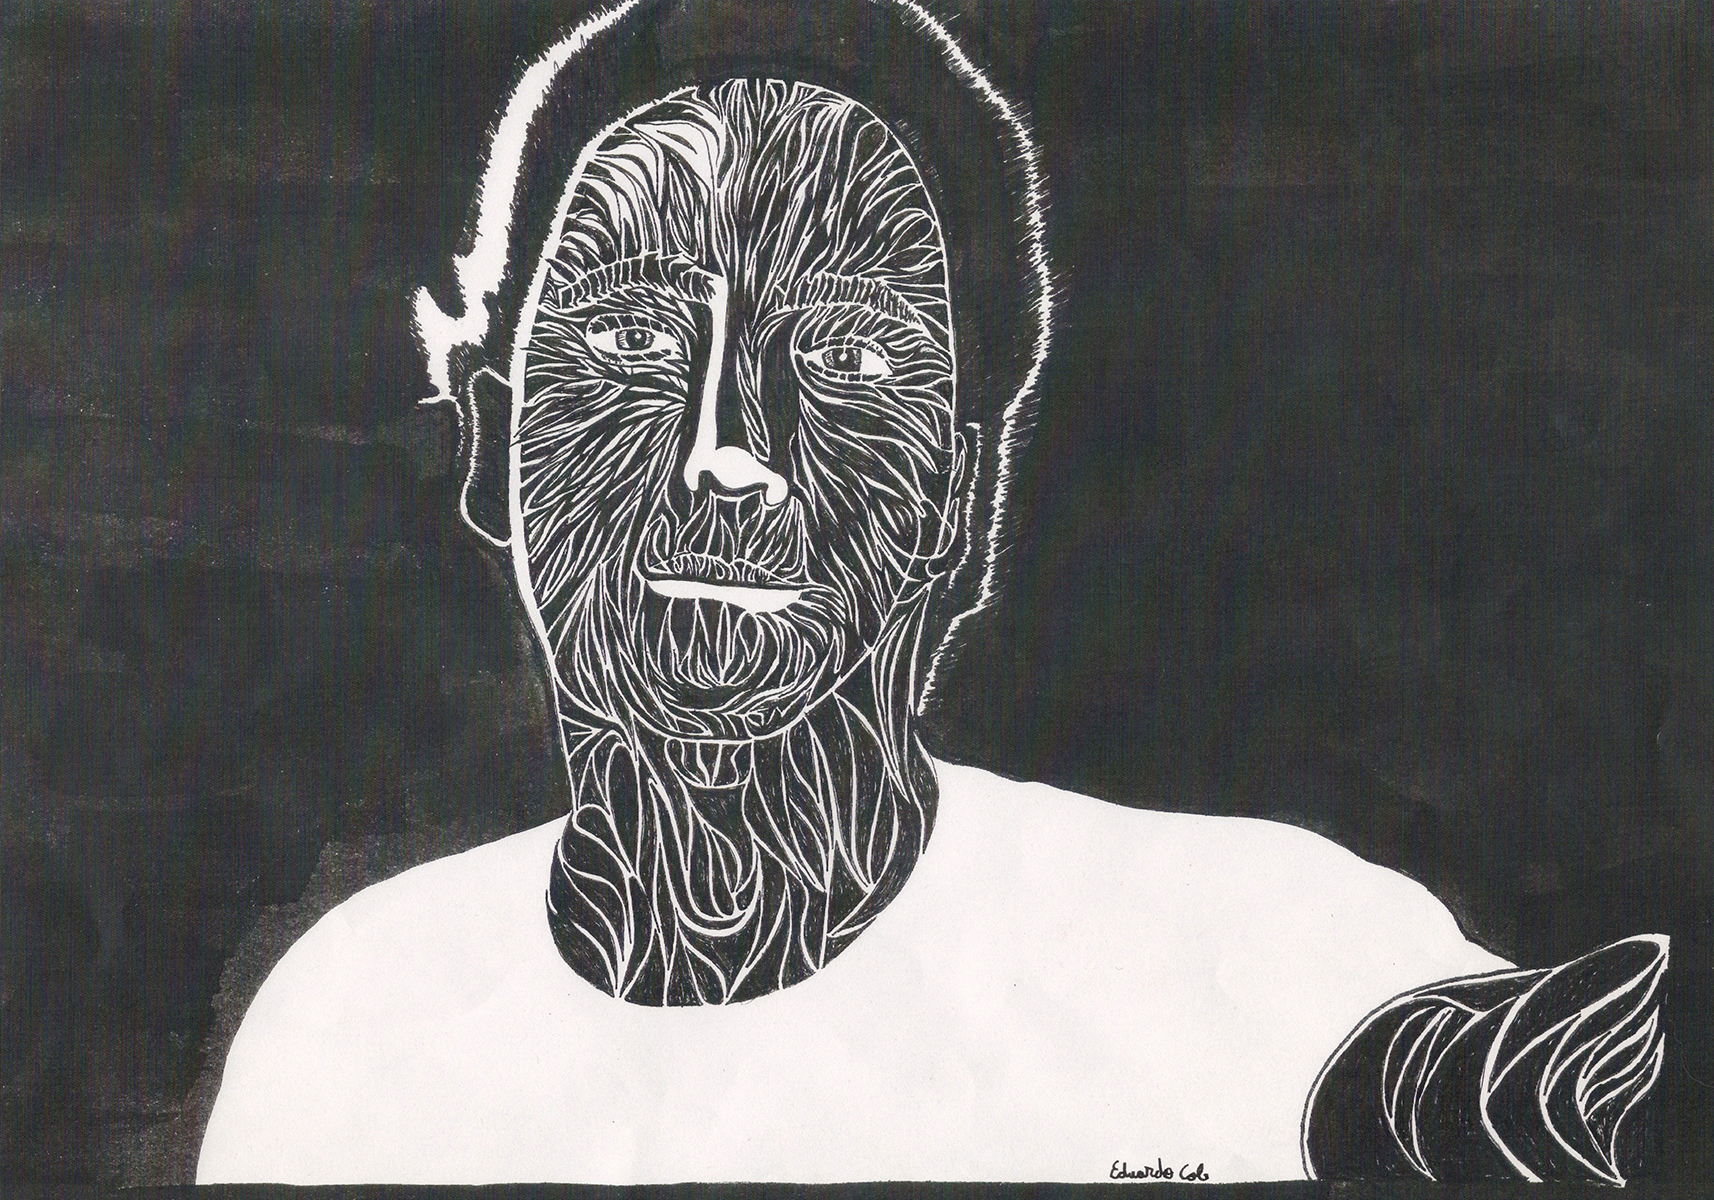 Eduardo Cob